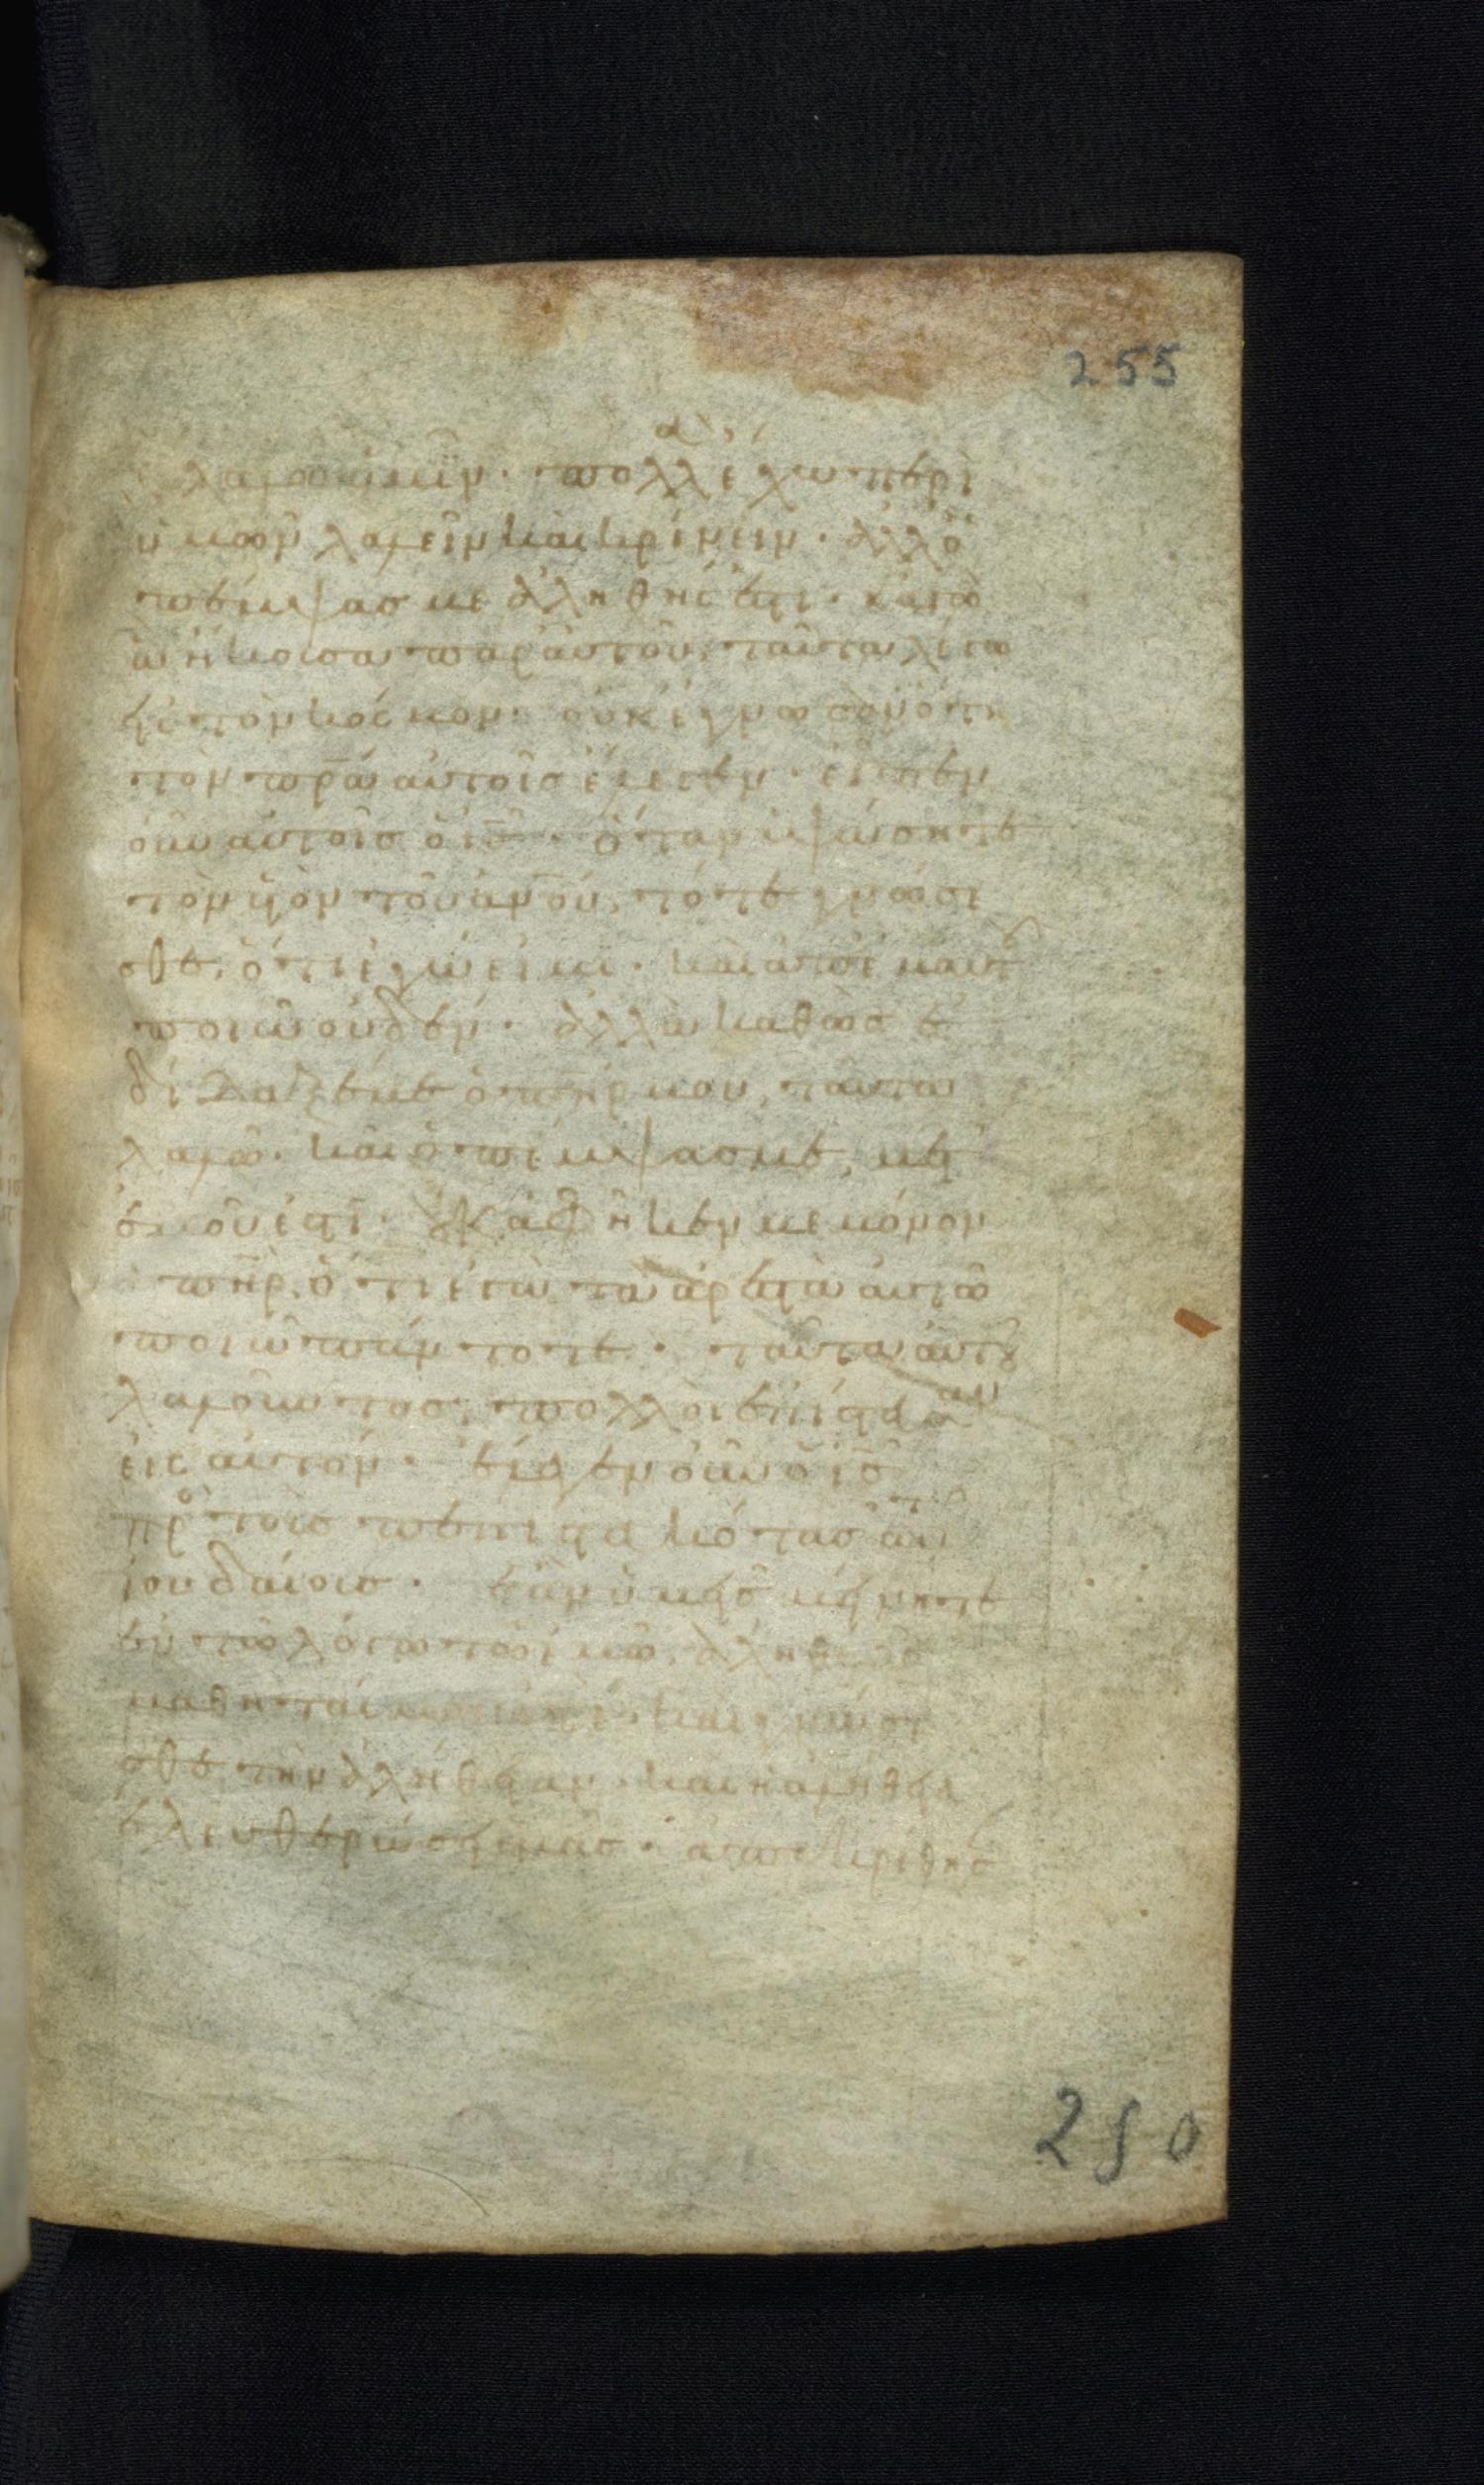 255
λαλῶ ὑμῖν · πολλὰ ἔχω περὶ
ὑμῶν λαλεῖν καὶ κρίνειν · ἀλλ ὁ
πέμψας με ἀληθής ἐστι · κἀγὼ
ἃ ἤκουσα παρ αὐτοῦ, ταῦτα λέγω
εἰς τὸν κόσμον · οὐκ ἔγνωσαν ὅτι
τὸν πρα αὐτοῖς ἔλεγεν · εἶπεν
οὖν αὐτοῖς ὁ ις · ὅταν ὑψώσητε
τὸν υἱὸν τοῦ ανου, τότε γνώσε
σθε, ὅτι ἐγώ εἰμι · καὶ ἀπ ἐμαυτοῦ
ποιῶ οὐδέν · ἀλλὰ καθὼς ἐ
δίδαξέν με ὁ πηρ μου, ταῦτα
λαλῶ · καὶ ὁ πέμψας με, μετ
ἐμοῦ ἐστι · οὐκ ἀφῆκέν με μόνον
ὁ πηρ, ὅτι ἐγὼ τὰ ἀρεστὰ αὐτῶ
ποιῶ πάντοτε · ταῦτα αὐτοῦ
λαλοῦντος, πολλοὶ ἐπίστευσαν
εἰς αὐτόν · ἔλεγεν οὖν ὁ ις
πρὸς τοὺς πεπιστευκότας αὐτῶ
ἰουδαίους · ἐὰν ὑμεῖς μείνητε
ἐν τῶ λόγω τῶ ἐμῶ, ἀληθῶς
μαθηταί μου ἐστέ · καὶ γνώσε
σθε τὴν ἀλήθειαν · καὶ ἡ ἀλήθεια
ἐλευθερώσει ὑμᾶς · ἀπεκρίθησ
250